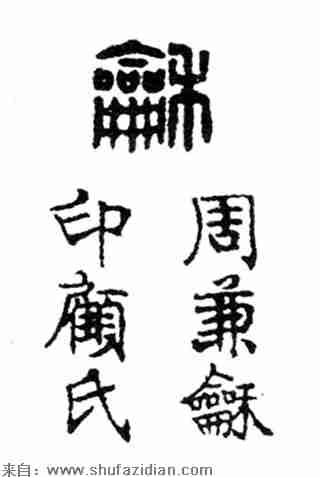 龢
周兼龢
印顧氏
来自：www.shufazidian.com